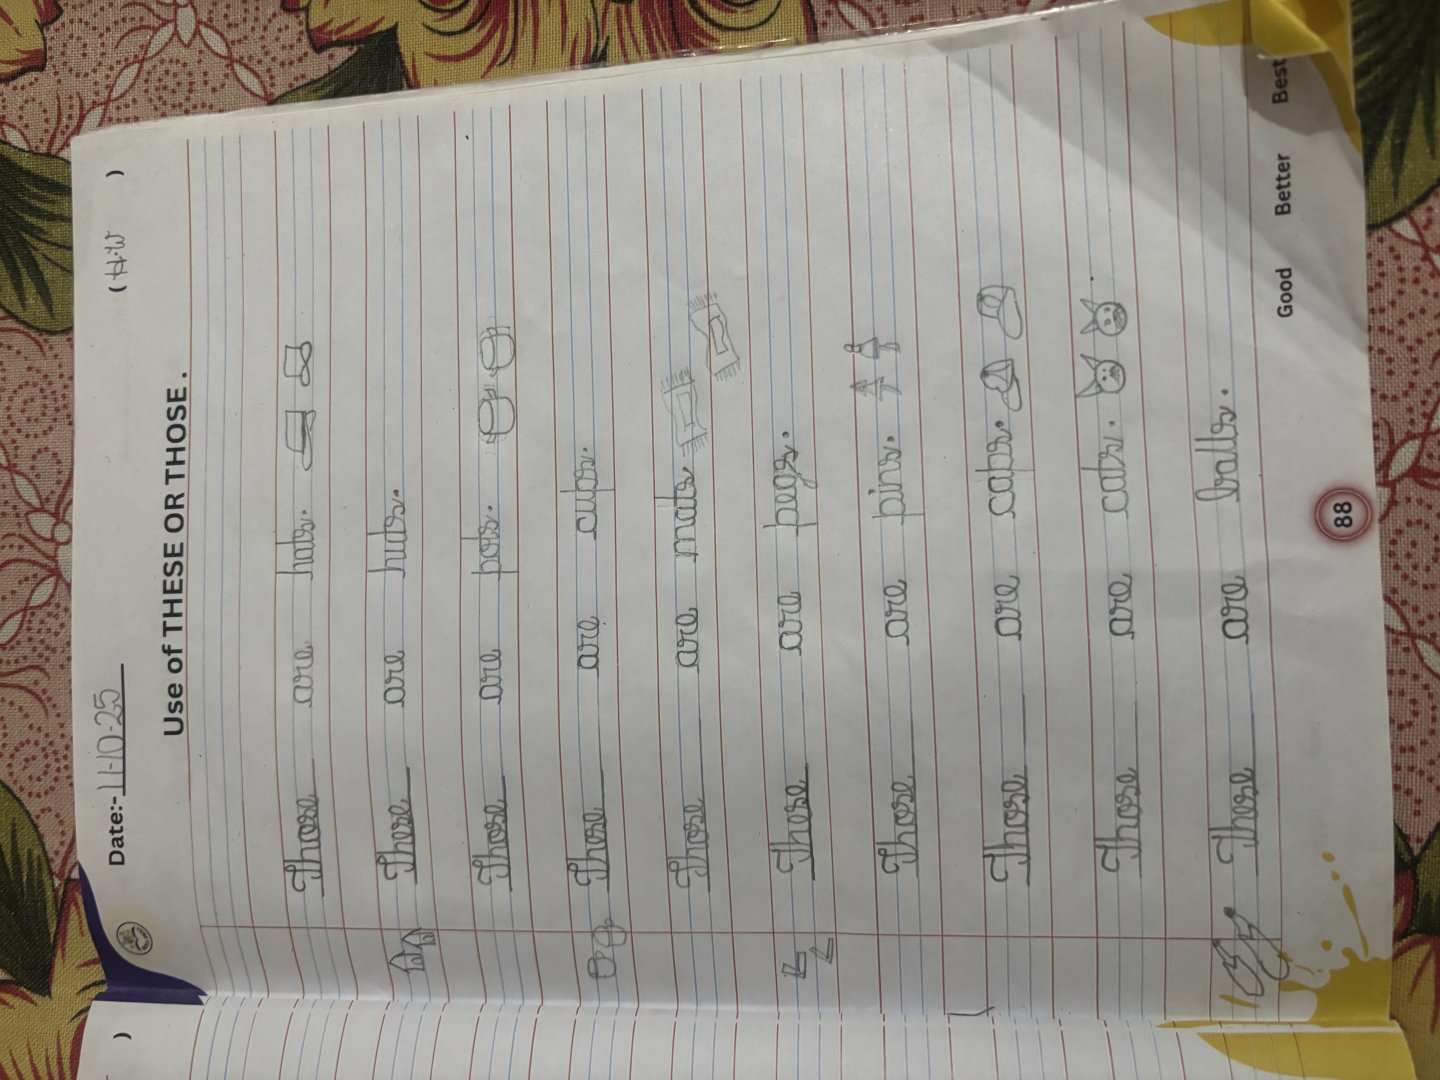 Date:- 11-10-25 (H.W )
Use of THESE OR THOSE .
Those are hats.
These are huts.
Those are pots.
These are cups.
Those are mats.
These are pegs.
Those are pins.
Those are caps.
Those are cats.
These are balls.
88
Good Better Best
)